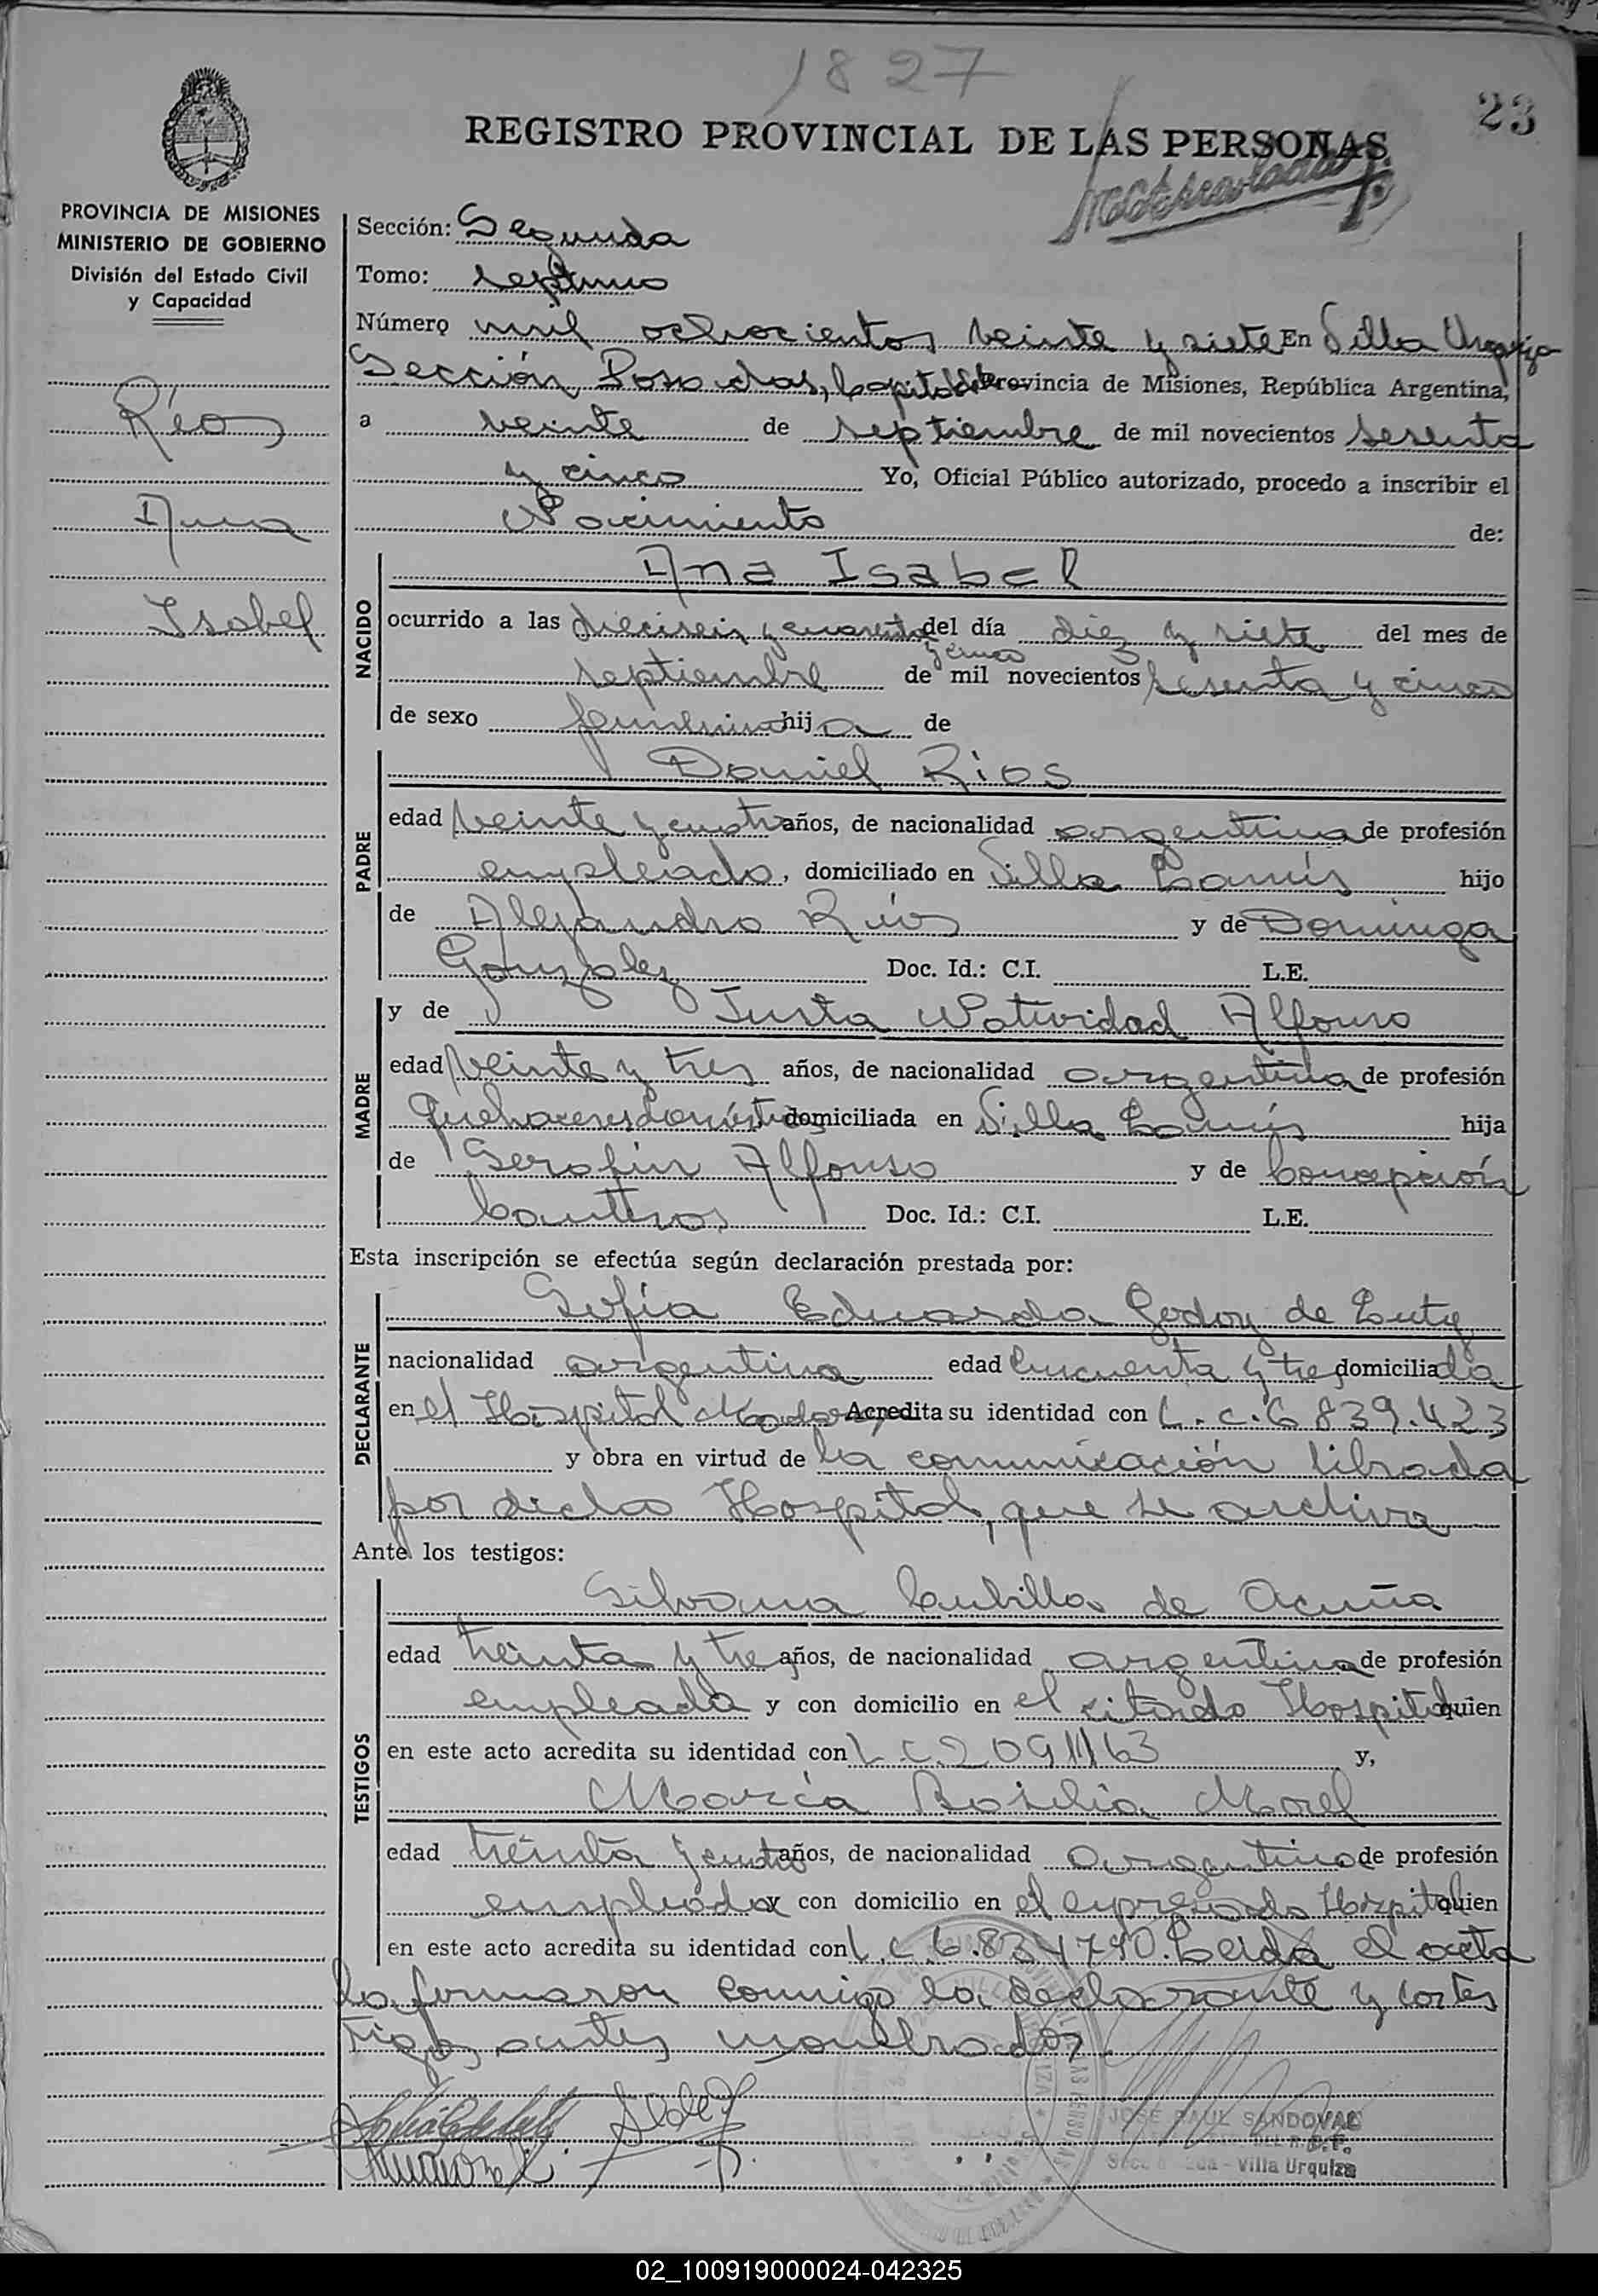 1827
23
REGISTRO PROVINCIAL DE LAS PERSONAS
PROVINCIA DE MISIONES
MINISTERIO DE GOBIERNO
División del Estado Civil
y Capacidad
Ríos
Ana
Isabel
Sección: Segunda
Tomo: septimo
Número mil ochocientos veinte y siete En Villa Urquiza
Sección Posadas, Capital de Provincia de Misiones, República Argentina,
a veinte de septiembre de mil novecientos sesenta
y cinco Yo, Oficial Público autorizado, procedo a inscribir el
Nacimiento de:
NACIDO
Ana Isabel
ocurrido a las dieciseis y cuarenta del día diez y siete del mes de
y cinco
septiembre de mil novecientos sesenta y cinco
de sexo femenino hija de
PADRE
Daniel Rios
edad veinte y cuatro años, de nacionalidad argentina de profesión
empleado, domiciliado en Villa Lanús hijo
de Alejandro Ríos y de Dominga
Gonzalez Doc. Id.: C.I. L.E.
MADRE
y de Justa Natividad Alfonso
edad veinte y tres años, de nacionalidad argentina de profesión
Quehaceres domésticos domiciliada en Villa Lanús hija
de Serafín Alfonso y de Concepción
Doc. Id.: C.I. L.E.
Esta inscripción se efectúa según declaración prestada por:
DECLARANTE
Sofía Eduarda Godoy de
nacionalidad argentina edad cincuenta y tres domiciliada
en el Hospital Acredita su identidad con L.C. 6 839.423
y obra en virtud de la comunicación librada
por dicho Hospital, que se archiva
Ante los testigos:
TESTIGOS
Silvana Cubilla de Acuña
edad treinta y tres años, de nacionalidad argentina de profesión
empleada y con domicilio en el citado Hospital quien
en este acto acredita su identidad con L C 2 091163 y,
María Morel
edad treinta y cuatro años, de nacionalidad argentina de profesión
empleada y con domicilio en el expresado Hospital quien
en este acto acredita su identidad con L.C 6.834740. Leida el acta
la firmaron conmigo la declarante y los tes
tigos antes nombrados.
JOSE RAUL SANDOVAL
Villa Urquiza
02_100919000024-042325